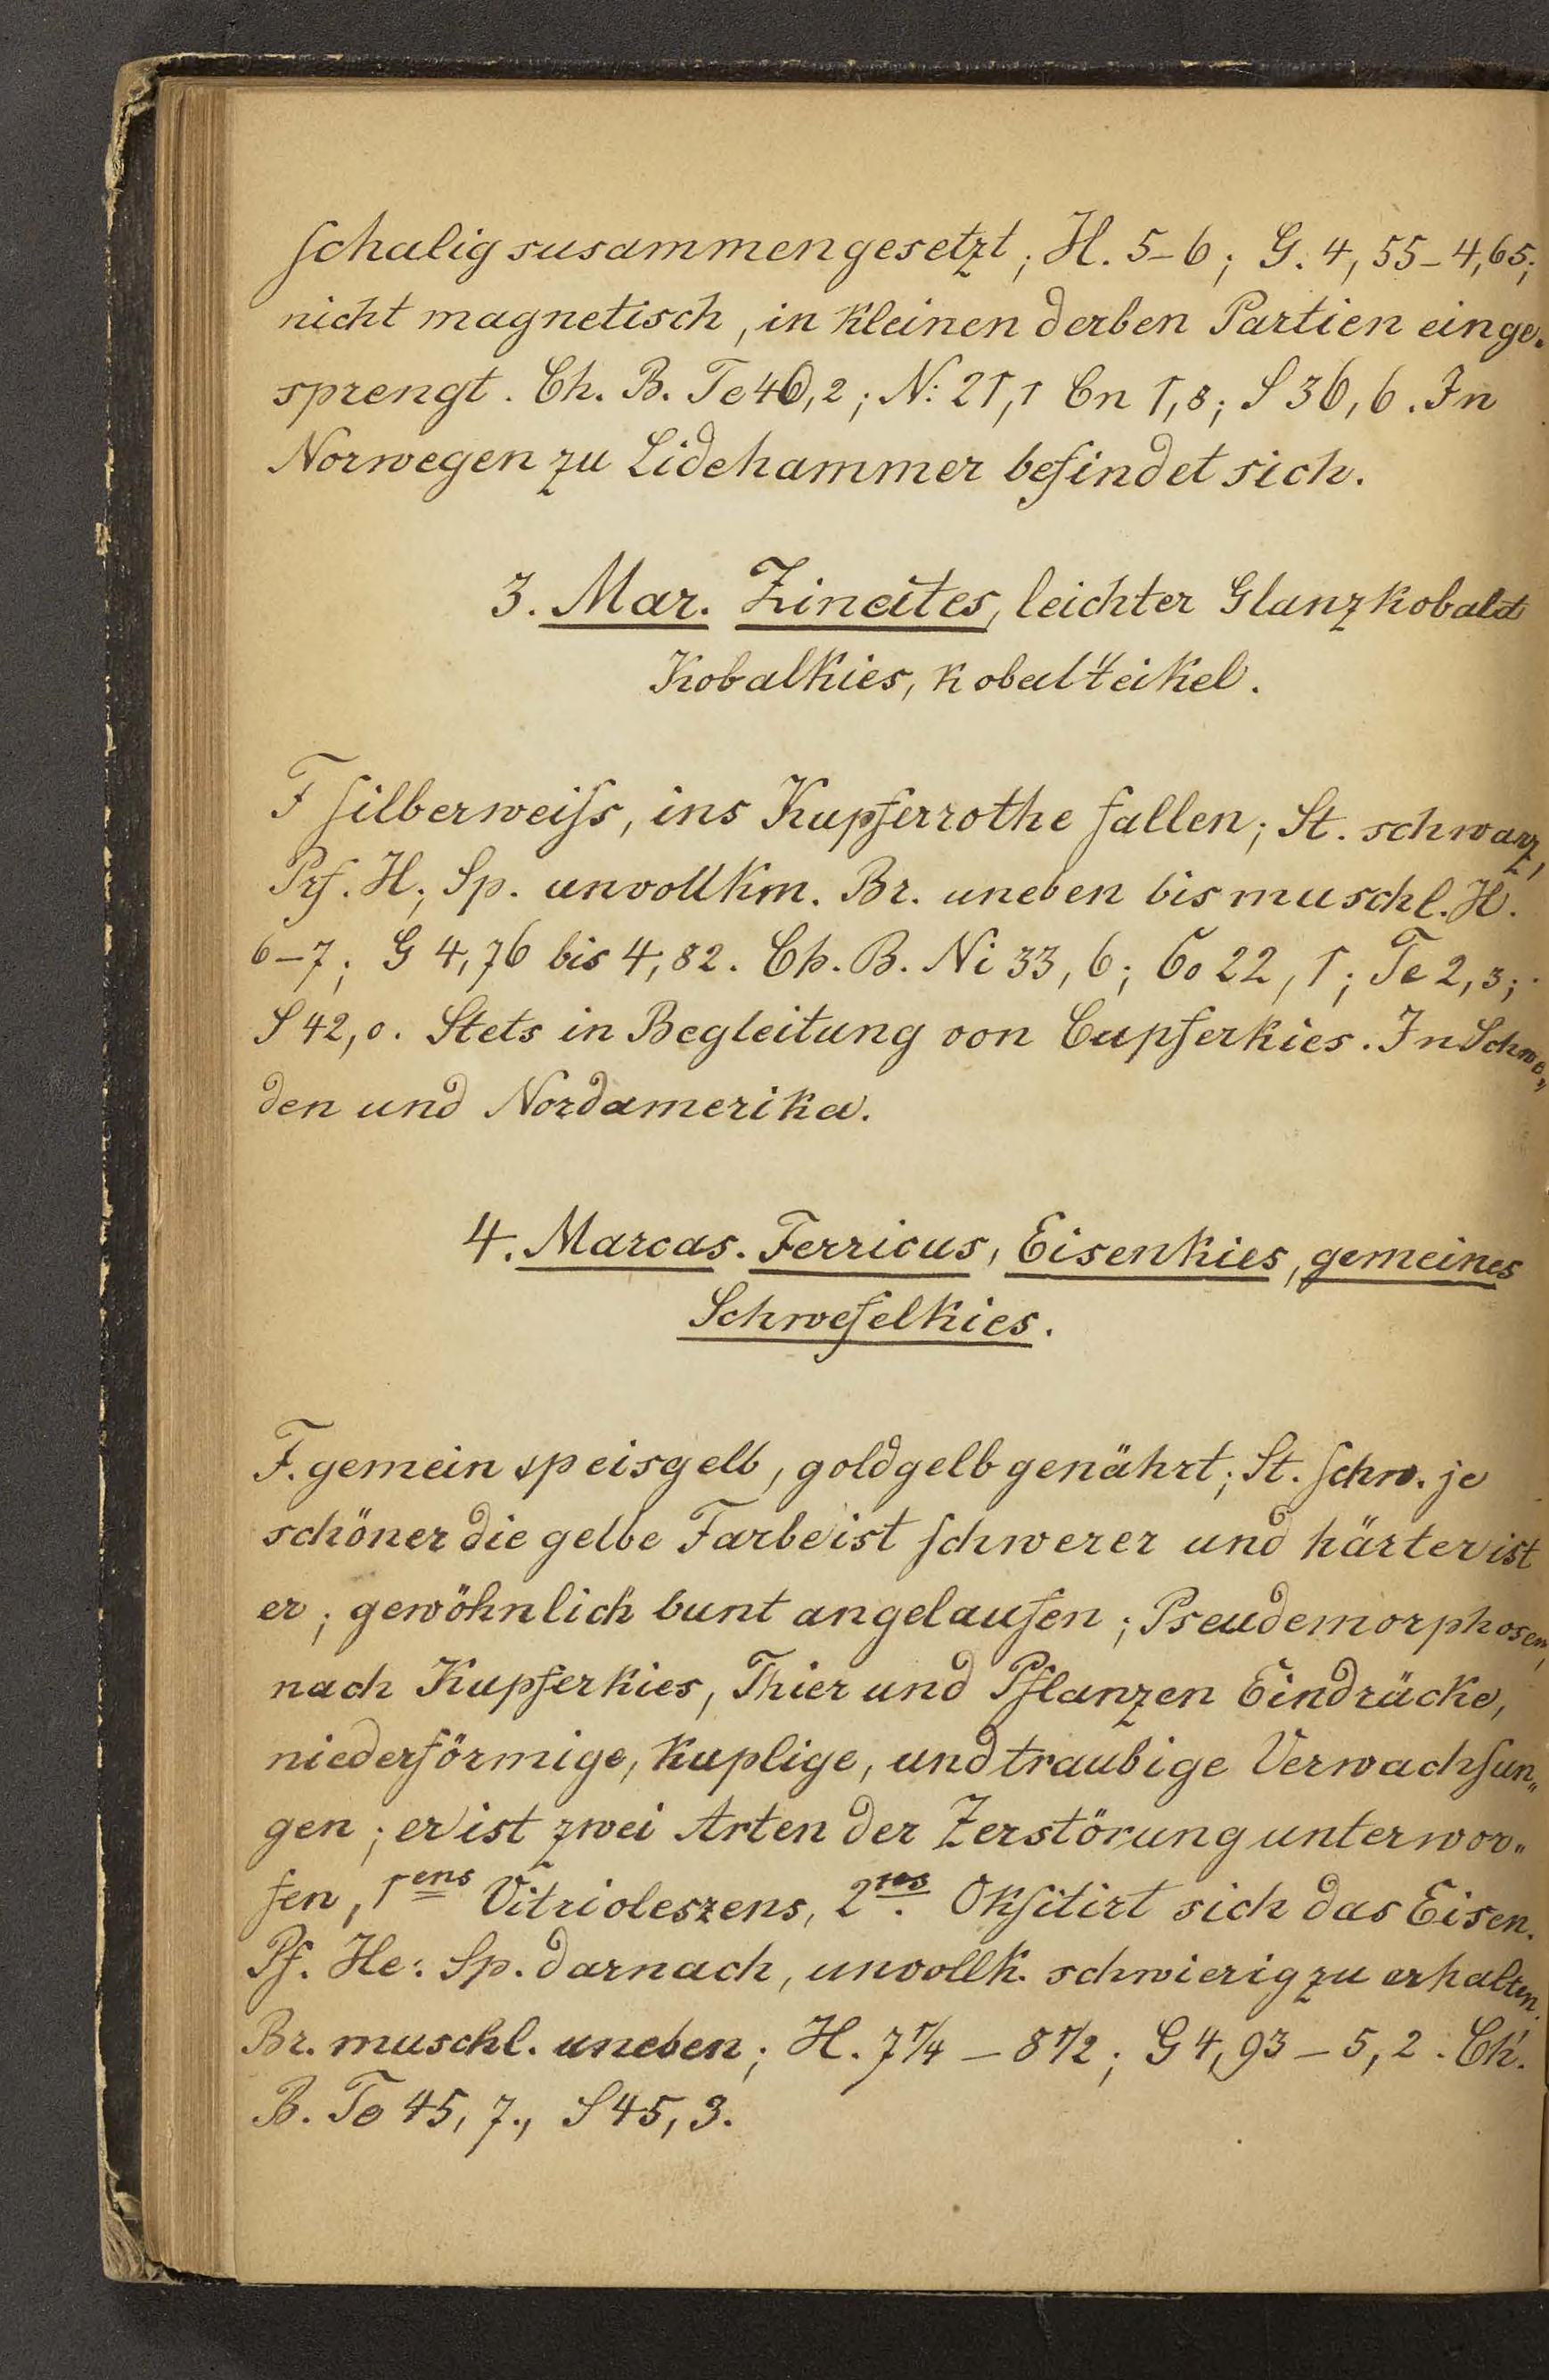 schalig susammengesetzt; H. 5-6; G. 4,55-4,65;
nicht magnetisch, in kleinen derben Partien einge-
sprengt. Ch. B. Te 40,2; N: 21,1 Cn 1,8; S 36,6. In
Norwegen zu Lidehammer befindet sich.
3. Mar. Lineites, leichter Glanzkobalt
Kobalkies, kobaltteikel.
F silberweiss, ins Kupferrothe fallen; St. schwarz,
Prf. H; Sp. unvollkm. Br. uneben bis muschl. H.
6-7; G 4,76 bis 4,82. Ch. B. Ni 33,6; Co 22,1; Te 2,3;
S 42,0. Stets in Begleitung von Cupferkies. In Schwe„
den und Nordamerika.
4. Marcas. Ferricus, Eisenkies, gemeines
Schwefelkies.
F. gemein speisgelb, goldgelb genährt; St. schw. je
schöner die gelbe Farbe ist schwerer und härter ist
er; gewöhnlich bunt angelaufen; Pseudemorphosen,
nach Kupferkies, Thier und Pflanzen Eindrücke,
niederförmige, kuplige, und traubige Verwachsun„
gen; er ist zwei Arten der Zerstörung unterwor„
fen, 1ens Vitrioleszens, 2tes. Oksitirt sich das Eisen.
Pf. He: Sp. darnach, unvollk. schwierig zu erhalten.
Br. muschl. uneben; H. 7 1/4 - 8 1/2; G 4,93 - 5,2. Ch.
B. Te 45,7., S 45,3.